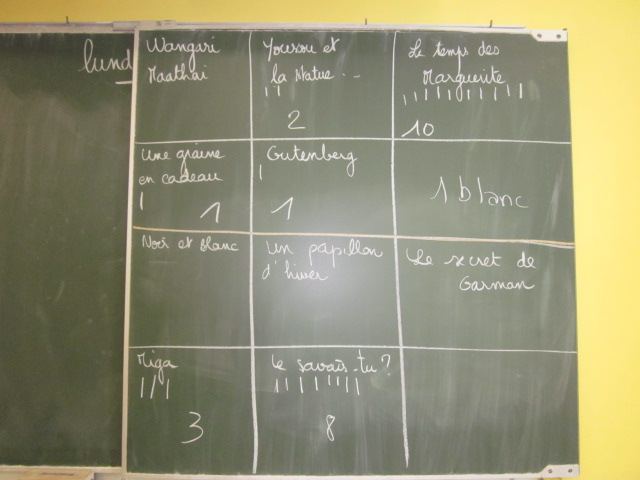 lund
Wangari
Maathai
Youssou et
la statue...
2
Le temps des
Marguerite
10
Une graine
en cadeau
1
Gutenberg
1
1 blanc
Noir et blanc
Un papillon
d'hiver
Le secret de
Garman
Miga
3
Le savais-tu?
8